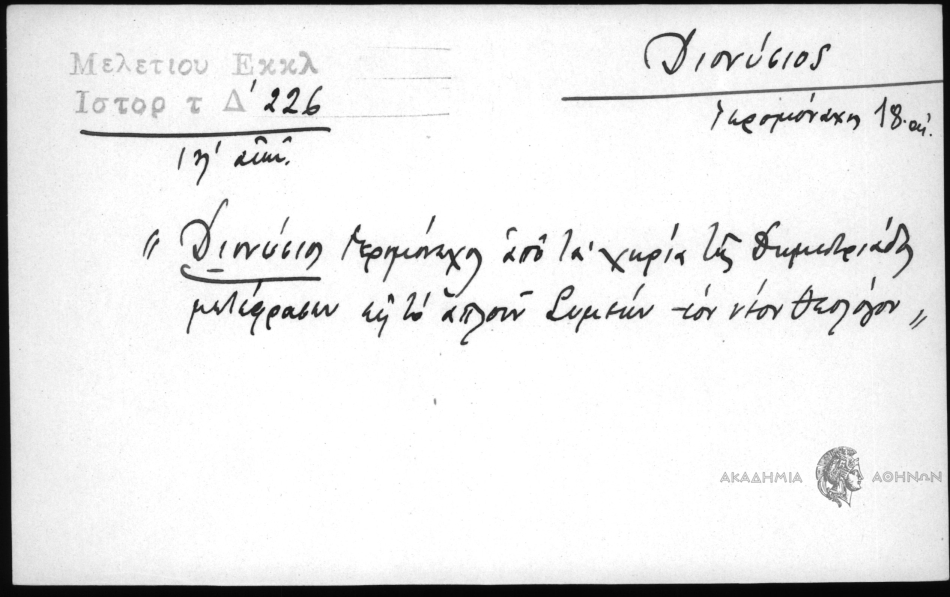 Μελετιου Εκκλ
Ιστορ τ Δ' 226
ιη' αἰών.
Διονύσιος
ἱερομόναχος 18 αἰ.
" Διονύσιος ἱερομόναχος ἀπὸ τὰ χωρία τῆς Δημητριάδος
μετέφρασεν εἰς τὸ ἁπλοῦν Συμεὼν τὸν νέον Θεολόγον "
ΑΚΑΔΗΜΙΑ ΑΘΗΝΩΝ